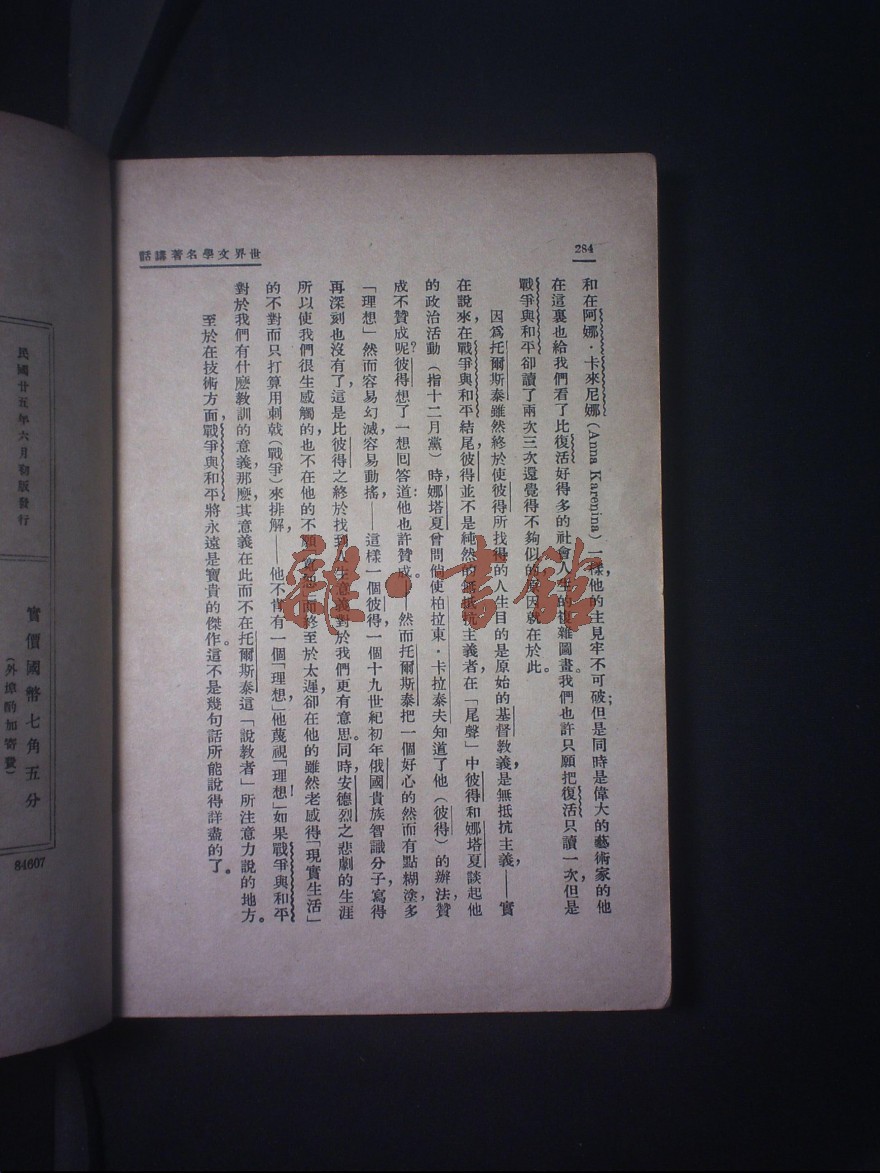 284
世界文學名著講話
和在阿娜·卡來尼娜(Anna Karenina)一樣，他的主見牢不可破；但是同時是偉大的藝術家的他
在這裏也給我們看了比復活好得多的社會人生的複雜圖畫。我們也許只願把復活只讀一次，但是
戰爭與和平卻讀了兩次三次還覺得不夠似的，原因就在於此。
因爲托爾斯泰雖然終於使彼得所找得的人生目的是原始的基督教義，是無抵抗主義，——實
在說來，在戰爭與和平結尾，彼得並不是純然的無抵抗主義者，在「尾聲」中彼得和娜塔夏談起他
的政治活動（指十二月黨）時，娜塔夏曾問倘使柏拉東·卡拉泰夫知道了他（彼得）的辦法，贊
成不贊成呢？彼得想了一想回答道：他也許贊成。——然而托爾斯泰把一個好心的然而有點糊塗，多
「理想」然而容易幻滅容易動搖，——這樣一個彼得，一個十九世紀初年俄國貴族智識分子寫得
再深刻也沒有了，這是比彼得之終於找到人生意義對於我們更有意思。同時，安德烈之悲劇的生涯
所以使我們很生感觸的，也不在他的不願會想，而終至於太遲，卻在他的雖然老感得「現實生活」
的不對而只打算用刺戟（戰爭）來排解，——他不肯有一個「理想」，他蔑視「理想」！如果戰爭與和平
對於我們有什麼教訓的意義，那麼，其意義在此而不在托爾斯泰這「說教者」所注意力說的地方。
至於在技術方面，戰爭與和平將永遠是寶貴的傑作。這不是幾句話所能說得詳盡的了。
民國廿五年六月初版發行
實價國幣七角五分
（外埠酌加寄費）
84607
雜·書館